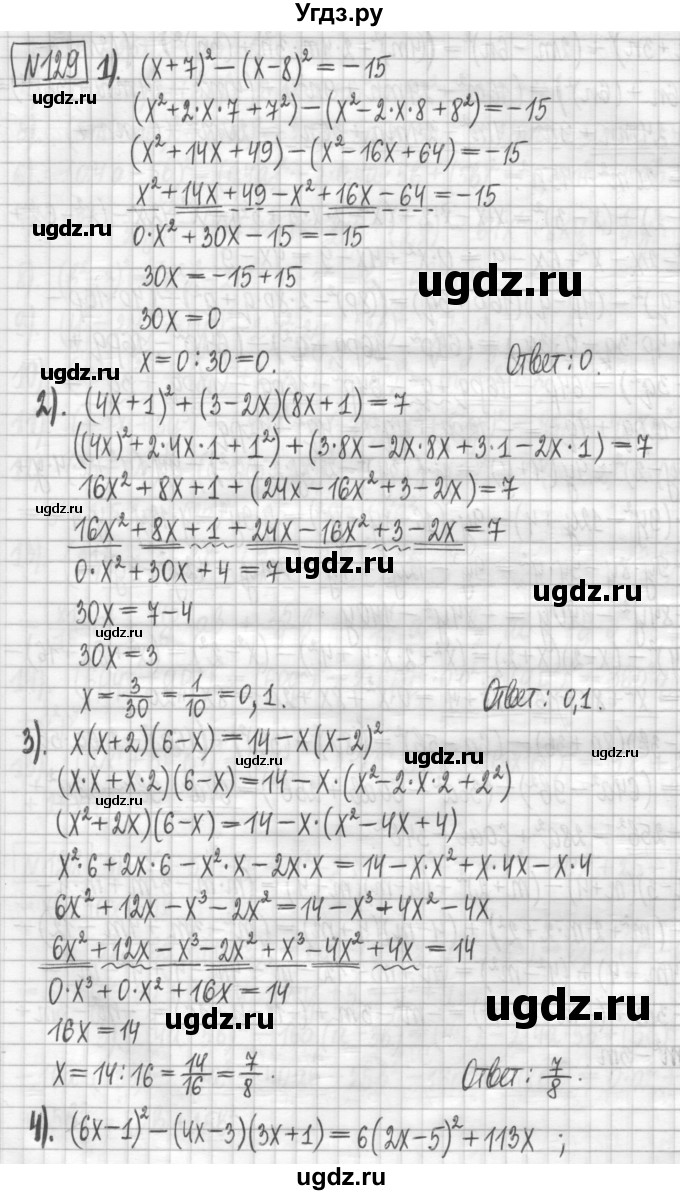 Угдз.ру
№129 1). (x+7)² − (x−8)² = −15
ugdz.ru
(x²+2·x·7+7²) − (x²−2·x·8+8²) = −15
(x²+14x+49) − (x²−16x+64) = −15
x²+14x+49−x²+16x−64 = −15
ugdz.ru
0·x²+30x−15 = −15
30x = −15+15
ugdz.ru
30x = 0
x = 0:30 = 0. Ответ: 0.
ugdz.ru
2). (4x+1)² + (3−2x)(8x+1) = 7
((4x)²+2·4x·1+1²) + (3·8x−2x·8x+3·1−2x·1) = 7
16x²+8x+1+(24x−16x²+3−2x) = 7
ugdz.ru
16x²+8x+1+24x−16x²+3−2x = 7
ugdz.ru
0·x²+30x+4 = 7
ugdz.ru
30x = 7−4
ugdz.ru
30x = 3
x = 3/30 = 1/10 = 0,1. Ответ: 0,1.
3). x(x+2)(6−x) = 14−x(x−2)²
ugdz.ru
ugdz.ru
(x·x+x·2)(6−x) = 14−x·(x²−2·x·2+2²)
ugdz.ru
(x²+2x)(6−x) = 14−x·(x²−4x+4)
x²·6+2x·6−x²·x−2x·x = 14−x·x²+x·4x−x·4
6x²+12x−x³−2x² = 14−x³+4x²−4x
6x²+12x−x³−2x²+x³−4x²+4x = 14
0·x³+0·x²+16x = 14
ugdz.ru
ugdz.ru
16x = 14
x = 14:16 = 14/16 = 7/8. Ответ: 7/8.
4). (6x−1)² − (4x−3)(3x+1) = 6(2x−5)²+113x ;
ugdz.ru